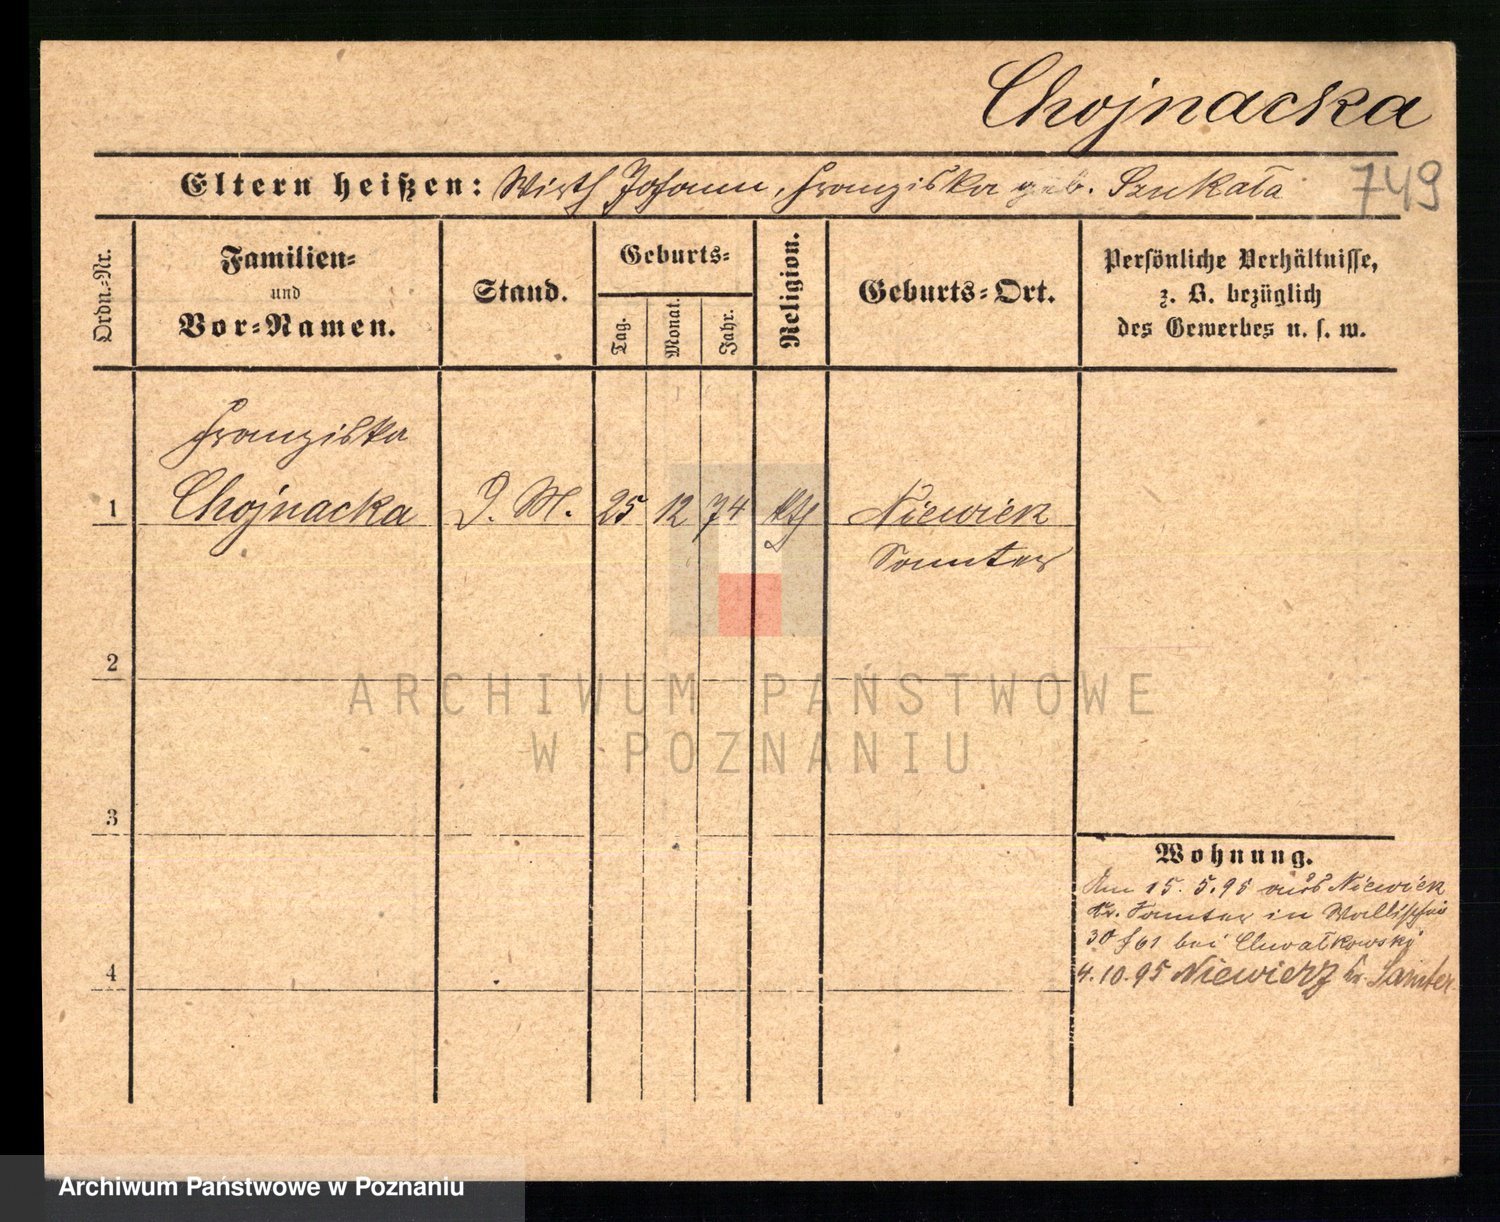 Chojnacka
Eltern heißen: Wirth Johann, Franziska geb. Szukała
749
Ordn.-Nr.
Familien-
und
Vor-Namen.
Stand.
Geburts-
Tag.
Monat.
Jahr.
Religion.
Geburts-Ort.
Persönliche Verhältnisse,
z. B. bezüglich
des Gewerbes u. s. w.
Franziska
1 Chojnacka D. M. 25 12 74 kth Niewierz
Samter
2
3
4
ARCHIWUM PAŃSTWOWE
W POZNANIU
Wohnung.
Am 15. 5. 95 aus Niewierz
Kr. Samter in Wallischei
30 bei Chwałkowski
4. 10. 95 Niewierz Kr. Samter
Archiwum Państwowe w Poznaniu